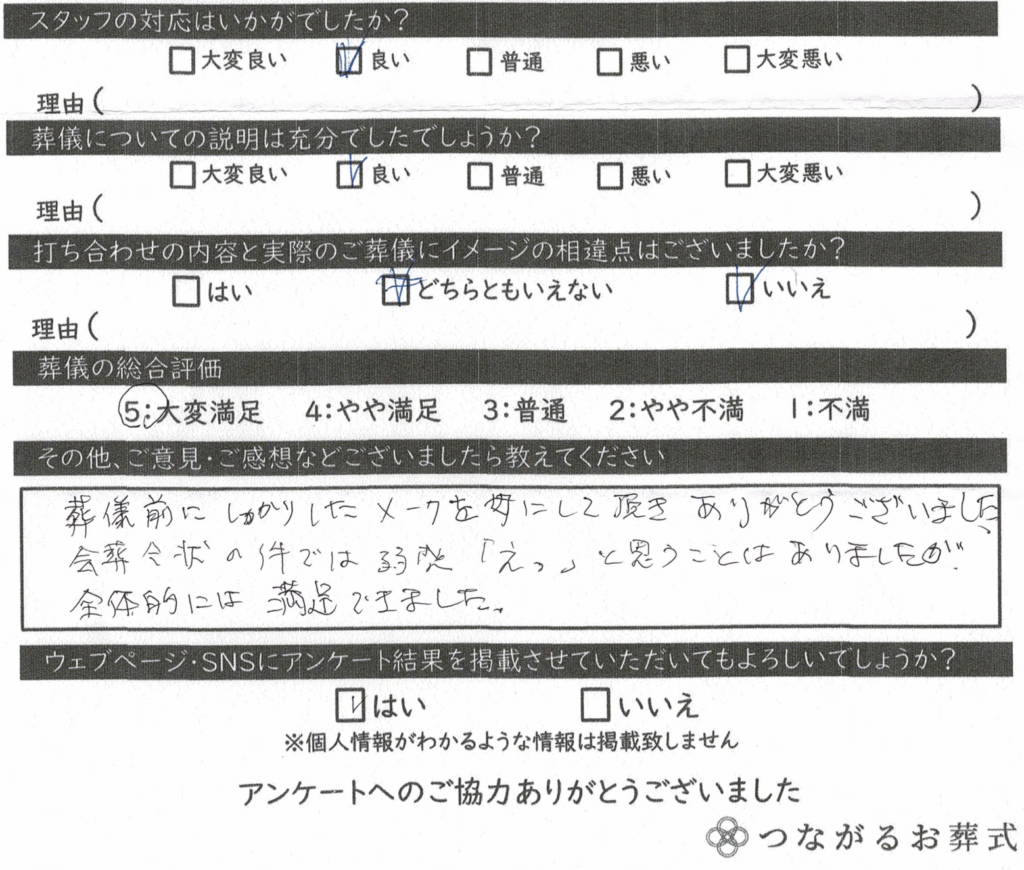 スタッフの対応はいかがでしたか?
□大変良い ☑良い □普通 □悪い □大変悪い
理由( )
葬儀についての説明は充分でしたでしょうか?
□大変良い ☑良い □普通 □悪い □大変悪い
理由( )
打ち合わせの内容と実際のご葬儀にイメージの相違点はございましたか?
□はい ☑どちらともいえない ☑いいえ
理由( )
葬儀の総合評価
5:大変満足 4:やや満足 3:普通 2:やや不満 1:不満
その他、ご意見・ご感想などございましたら教えてください
葬儀前にしっかりしたメークを母にして頂きありがとうございました、
会葬令状の件では「えっ」と思うことはありましたが
全体的には満足できました。
ウェブページ・SNSにアンケート結果を掲載させていただいてもよろしいでしょうか?
☑はい □いいえ
※個人情報がわかるような情報は掲載致しません
アンケートへのご協力ありがとうございました
つながるお葬式